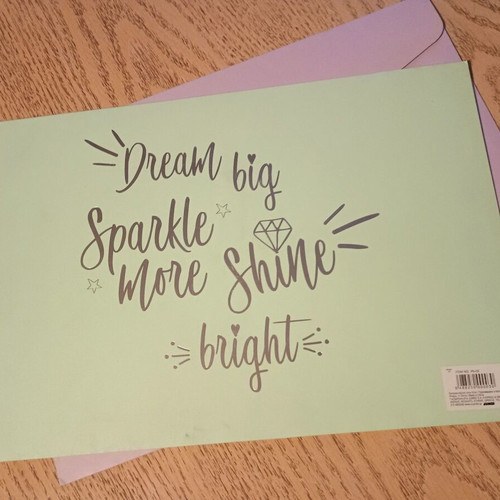 Dream big
Sparkle
more Shine
bright